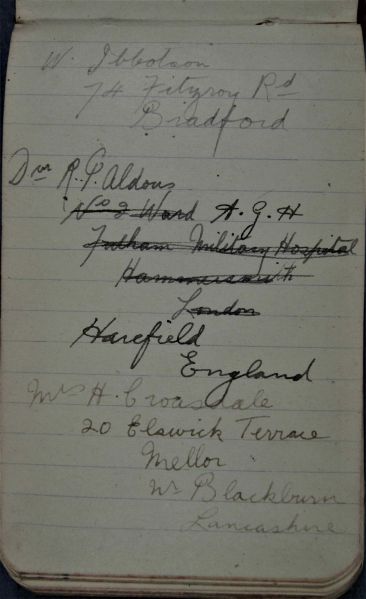 W. Ibbotson
74 Fitzroy Rd
Bradford
Dvr R. P. Aldous
No 2 Ward A.G.H
Fulham Military Hospital
Hammersmith
London
Harefield
England
Mrs H. Croasdale
20 Elswick Terrace
Mellor
Nr Blackburn
Lancashire